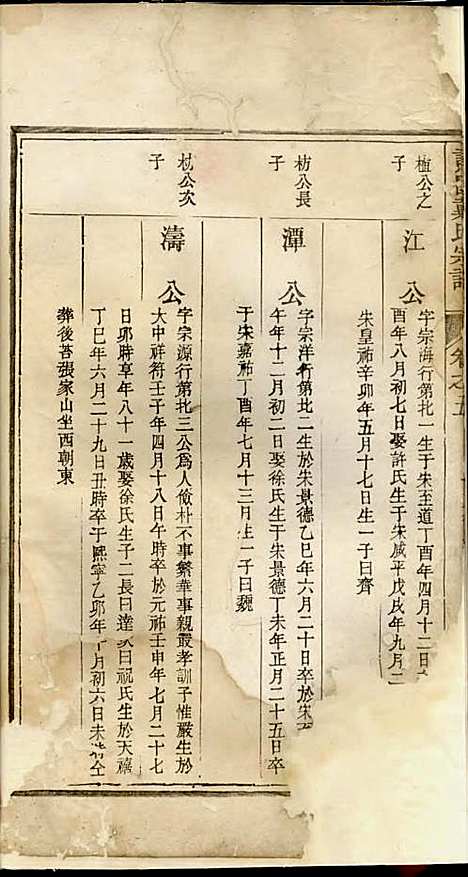 氏宗譜
卷之五
植公之
子
江公
字宗海行第北一生于宋至道丁酉年四月十二日
酉年八月初七日娶許氏生于宋咸平戊戌年九月二
宋皇祐辛卯年五月十七日生一子曰齊
枋公長
子
潭公
字宗洋行第北二生於宋景德乙巳年六月二十日卒於宋
午年十二月初二日娶徐氏生于宋景德丁未年正月二十五日卒
于宋嘉祐丁酉年七月十三月生一子曰魏
杜公次
子
濤公
字宗源行第北三公為人儉朴不事繁華事親最孝訓子惟嚴生於
大中祥符壬子年四月十八日午時卒於元祐壬申年七月二十七
日卯時享年八十一歲娶徐氏生子二長曰達次曰祝氏生於天禧
丁巳年六月二十九日丑時卒于熙寧乙卯年十月初六日未時仝
葬後菩張家山坐西朝東